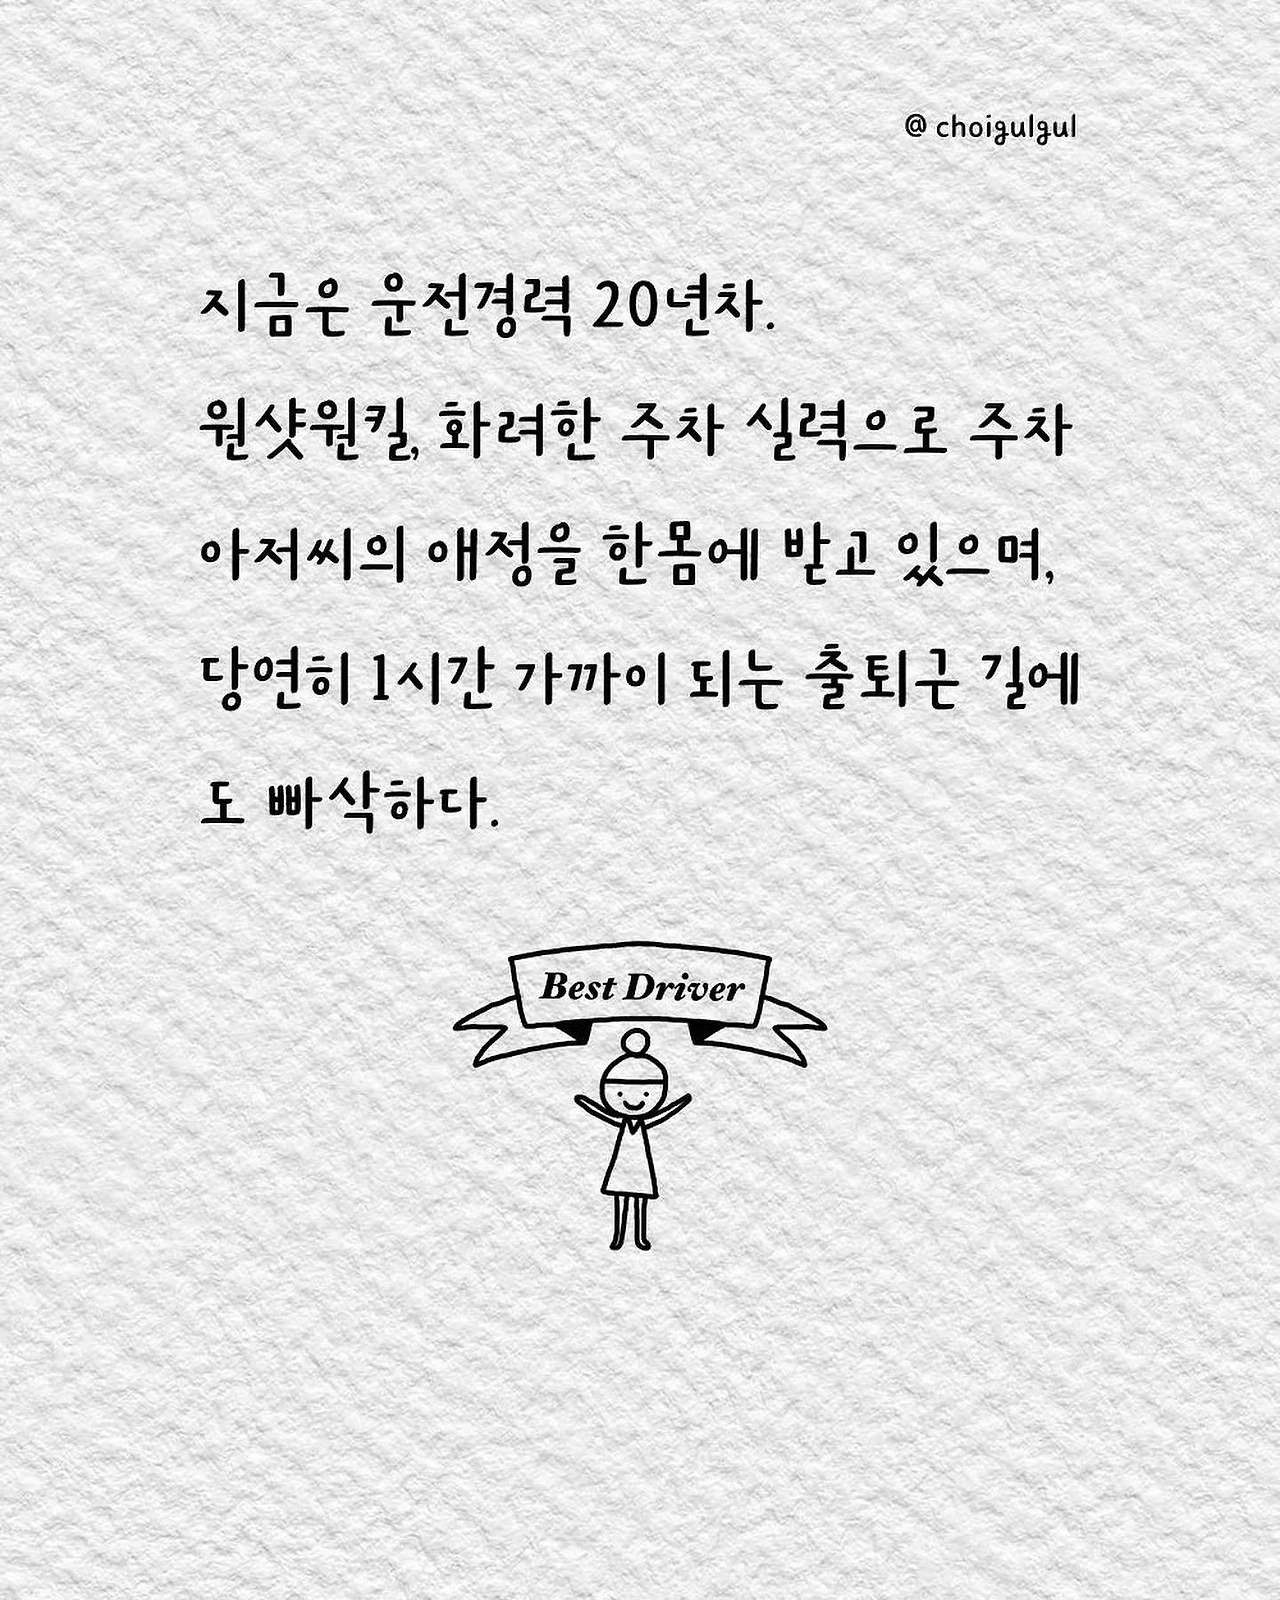 @ choigulgul
지금은 운전경력 20년차.
원샷원킬, 화려한 주차 실력으로 주차
아저씨의 애정을 한몸에 받고 있으며,
당연히 1시간 가까이 되는 출퇴근 길에
도 빠삭하다.
Best Driver